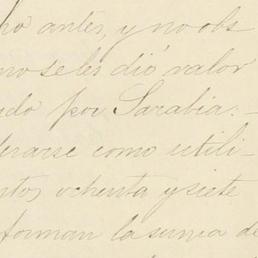 ho antes, y no obs
no se les dió valor
ado por Sarabia.—
erarse como utili-
ntos ochenta y siete
forman la suma de